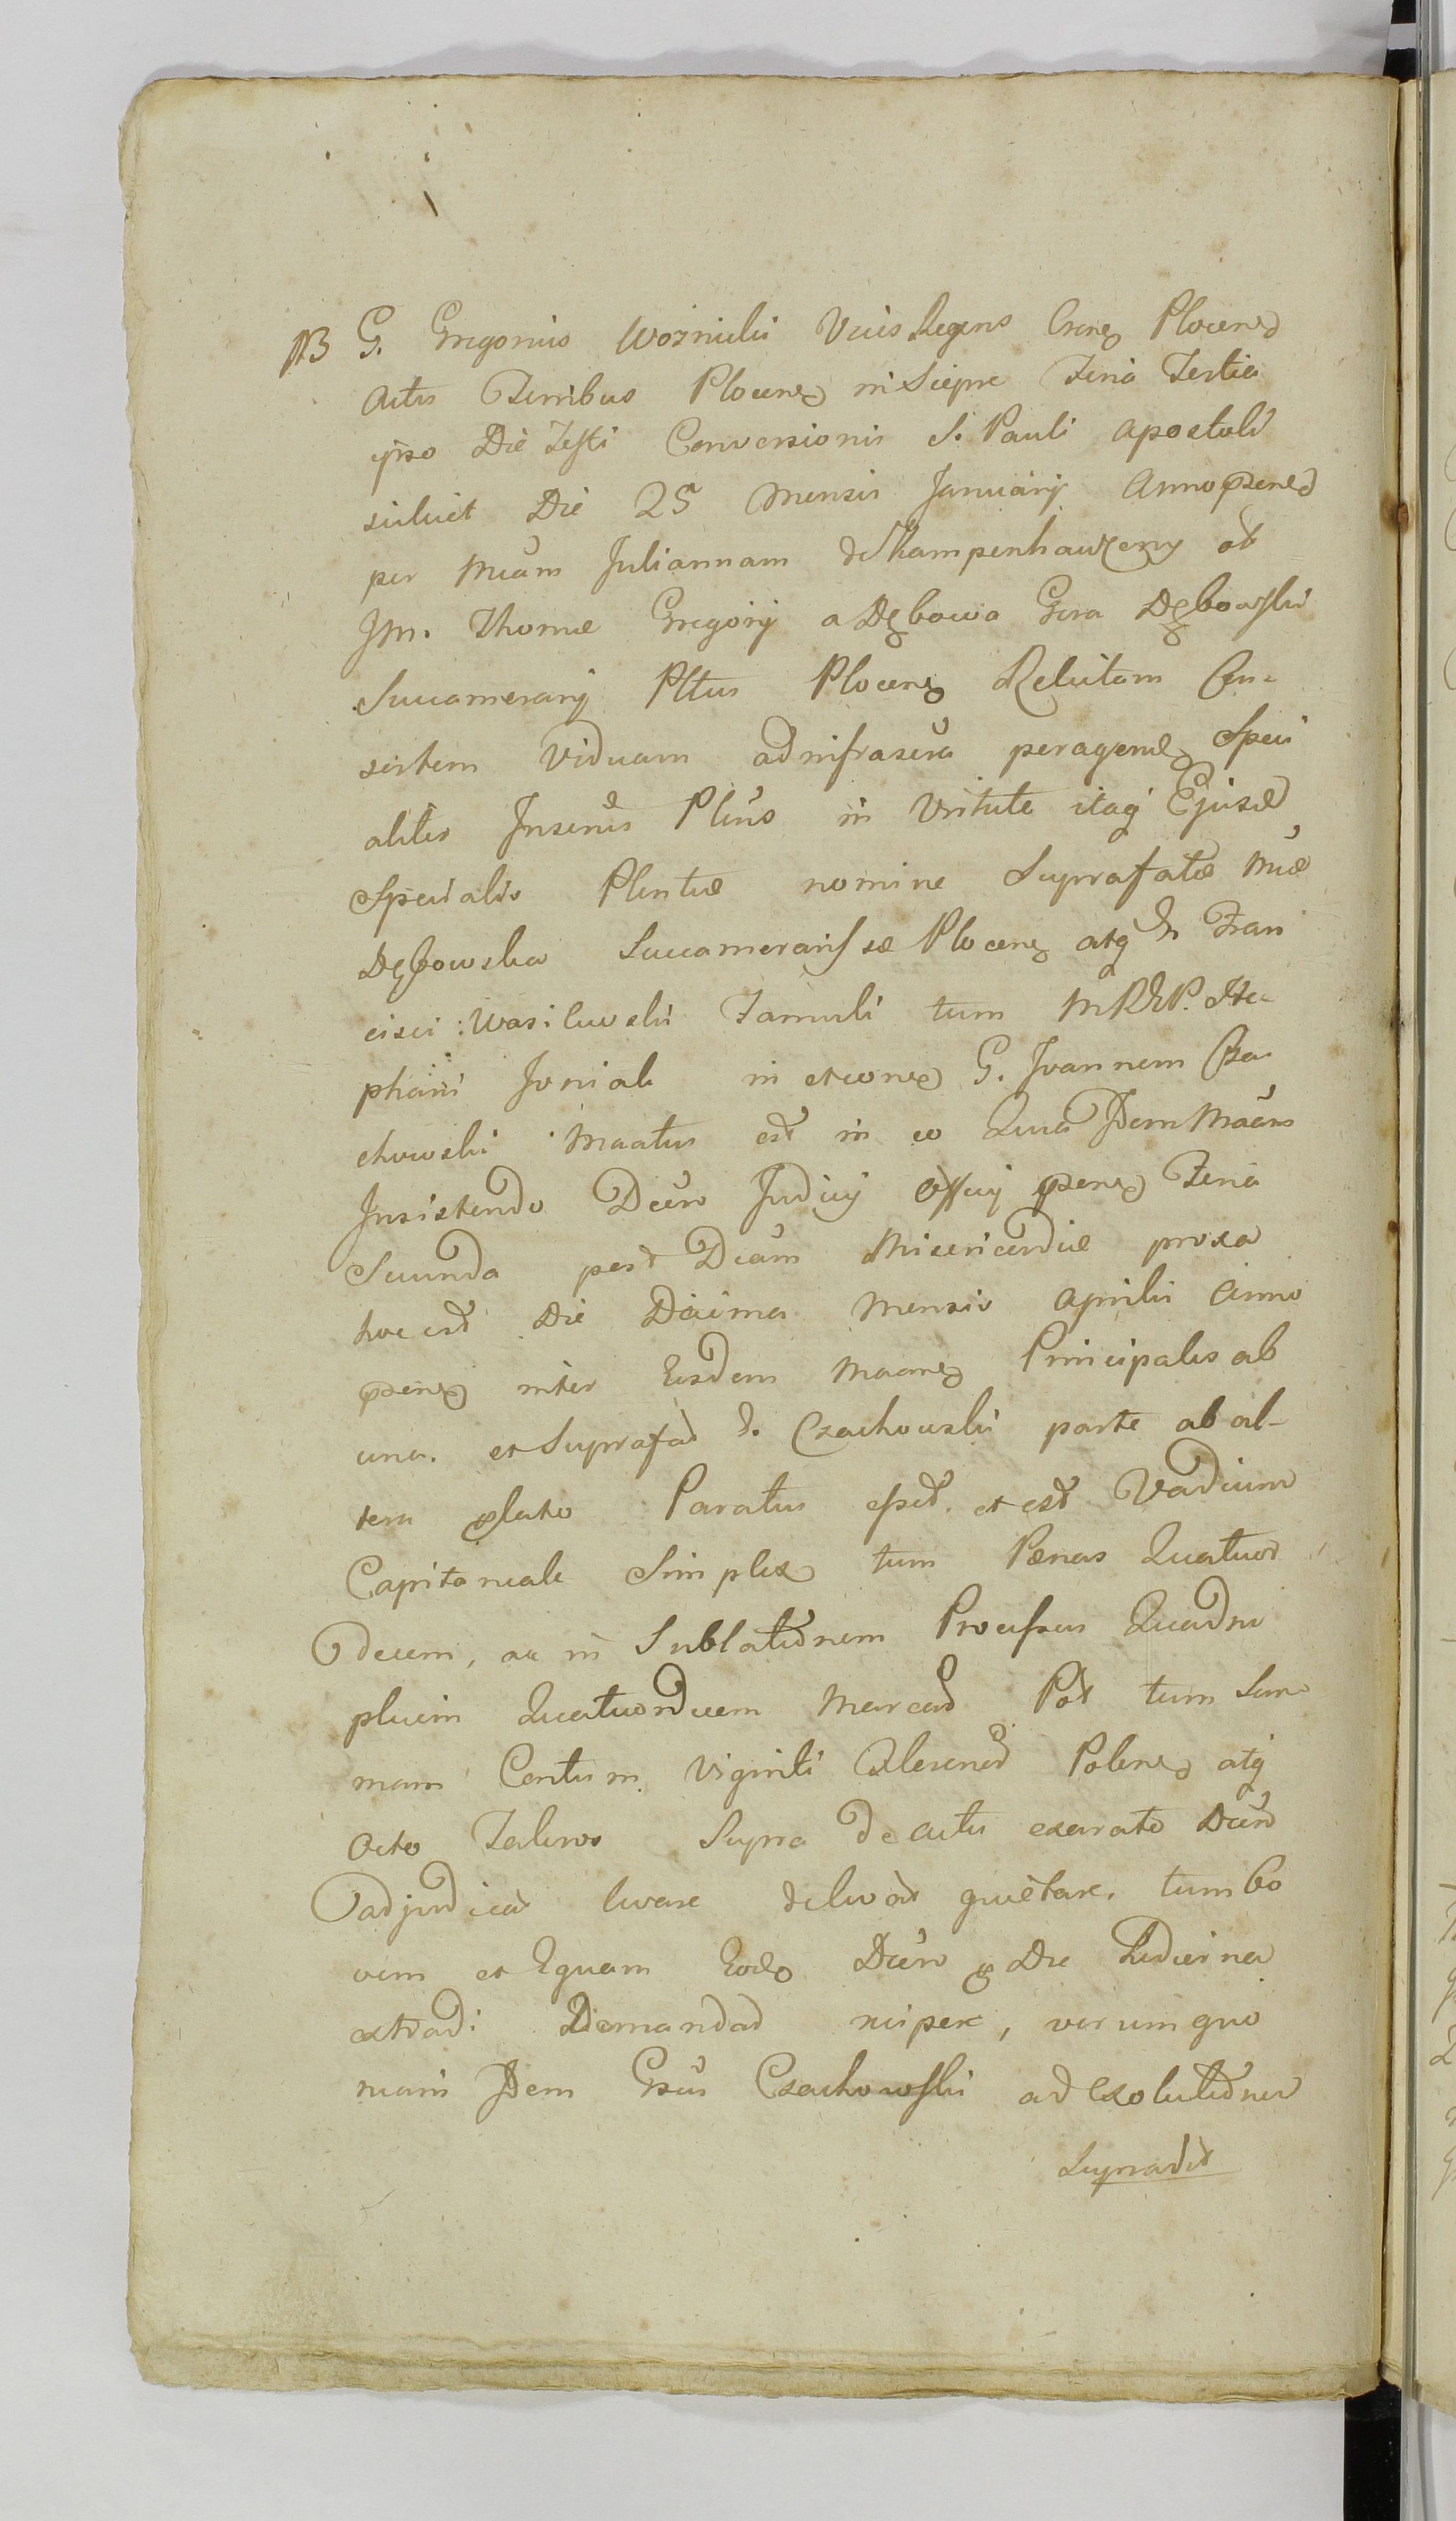 NB G. Gregorius Woźnicki Vices Regens Cxne Plocens
Actis Terribus Plocens in Sierpc Feria Tertia
ipso Die Festi Conversionis S. Pauli Apostoli
scilicet Die 25 Mensis Januarij Anno psens
per Mcam Juliannam de Kampenhauzeny ab
Jm. Thomæ Gregorij a Dębowa Gora Dębowski
Succamerarij Pltus Plocens Relictam Con-
sortem Viduam ad infrascra peragend Speci
aliter Inserus Pleńs in Virtute itaq Ejusd
Specialis Plentiæ nomine Suprafatæ Mcæ
Dębowska Succamerarissæ Plocens atq G Fran
cisci Wasilewski Famuli tum MRDP. Ste-
phani Joniak in et cone G. Joannem Cza-
chowski Maatus est in eo Quia Idem Maans
Insistendo Dcro Judicij Officij psens Feria
Secunda post Dcam Misericordiæ proxa
hoc est Die Decima Mensis Aprilis Anno
psens inter Eusdem Maans Principales ab
una. et Suprafat G. Czachowski parte ab al-
tera plato Paratus esset et est Vadium
Capitaneale Simplex tum Pænas Quatuor
decem, ac in Sublationem Processus Quadru
plicem Quatuordecem Marcas Pol tum Sum
mam Centum Viginti Flerenos Polens atq
Octo Taleros Supra de actu exarato Dcro
adjudicat levare de levat quietare, tum Bo
vem et Equam Eod Dcro p Die Hodierna
extradi Demandat recipere, verum quo
niam Idem Gsus Czachowski ad Exolutione
Supradict